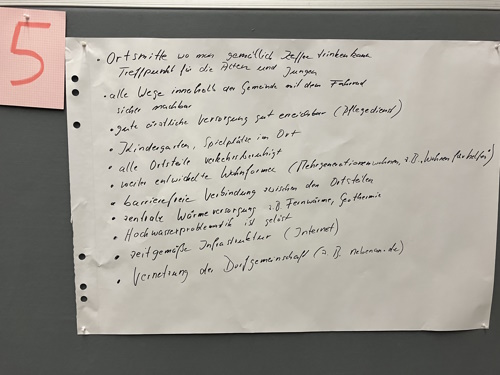 5
• Ortsmitte wo man gemütlich Kaffee trinken kann
Treffpunkt für die Alten und Jungen
• alle Wege innerhalb der Gemeinde mit dem Fahrrad
sicher machbar
• gute ärztliche Versorgung gut erreichbar (Pflegedienst)
• Kindergarten, Spielplätze im Ort
• alle Ortsteile verkehrsberuhigt
• weiter entwickelte Wohnformen (Mehrgenerationenwohnen, z.B. "Wohnen für helfen")
• barrierefreie Verbindung zwischen den Ortsteilen
• zentrale Wärmeversorgung z.B. Fernwärme, Geothermie
• Hochwasserproblematik ist gelöst
• zeitgemäße Infrastruktur (Internet)
• Vernetzung der Dorfgemeinschaft (z.B. nebenan.de)